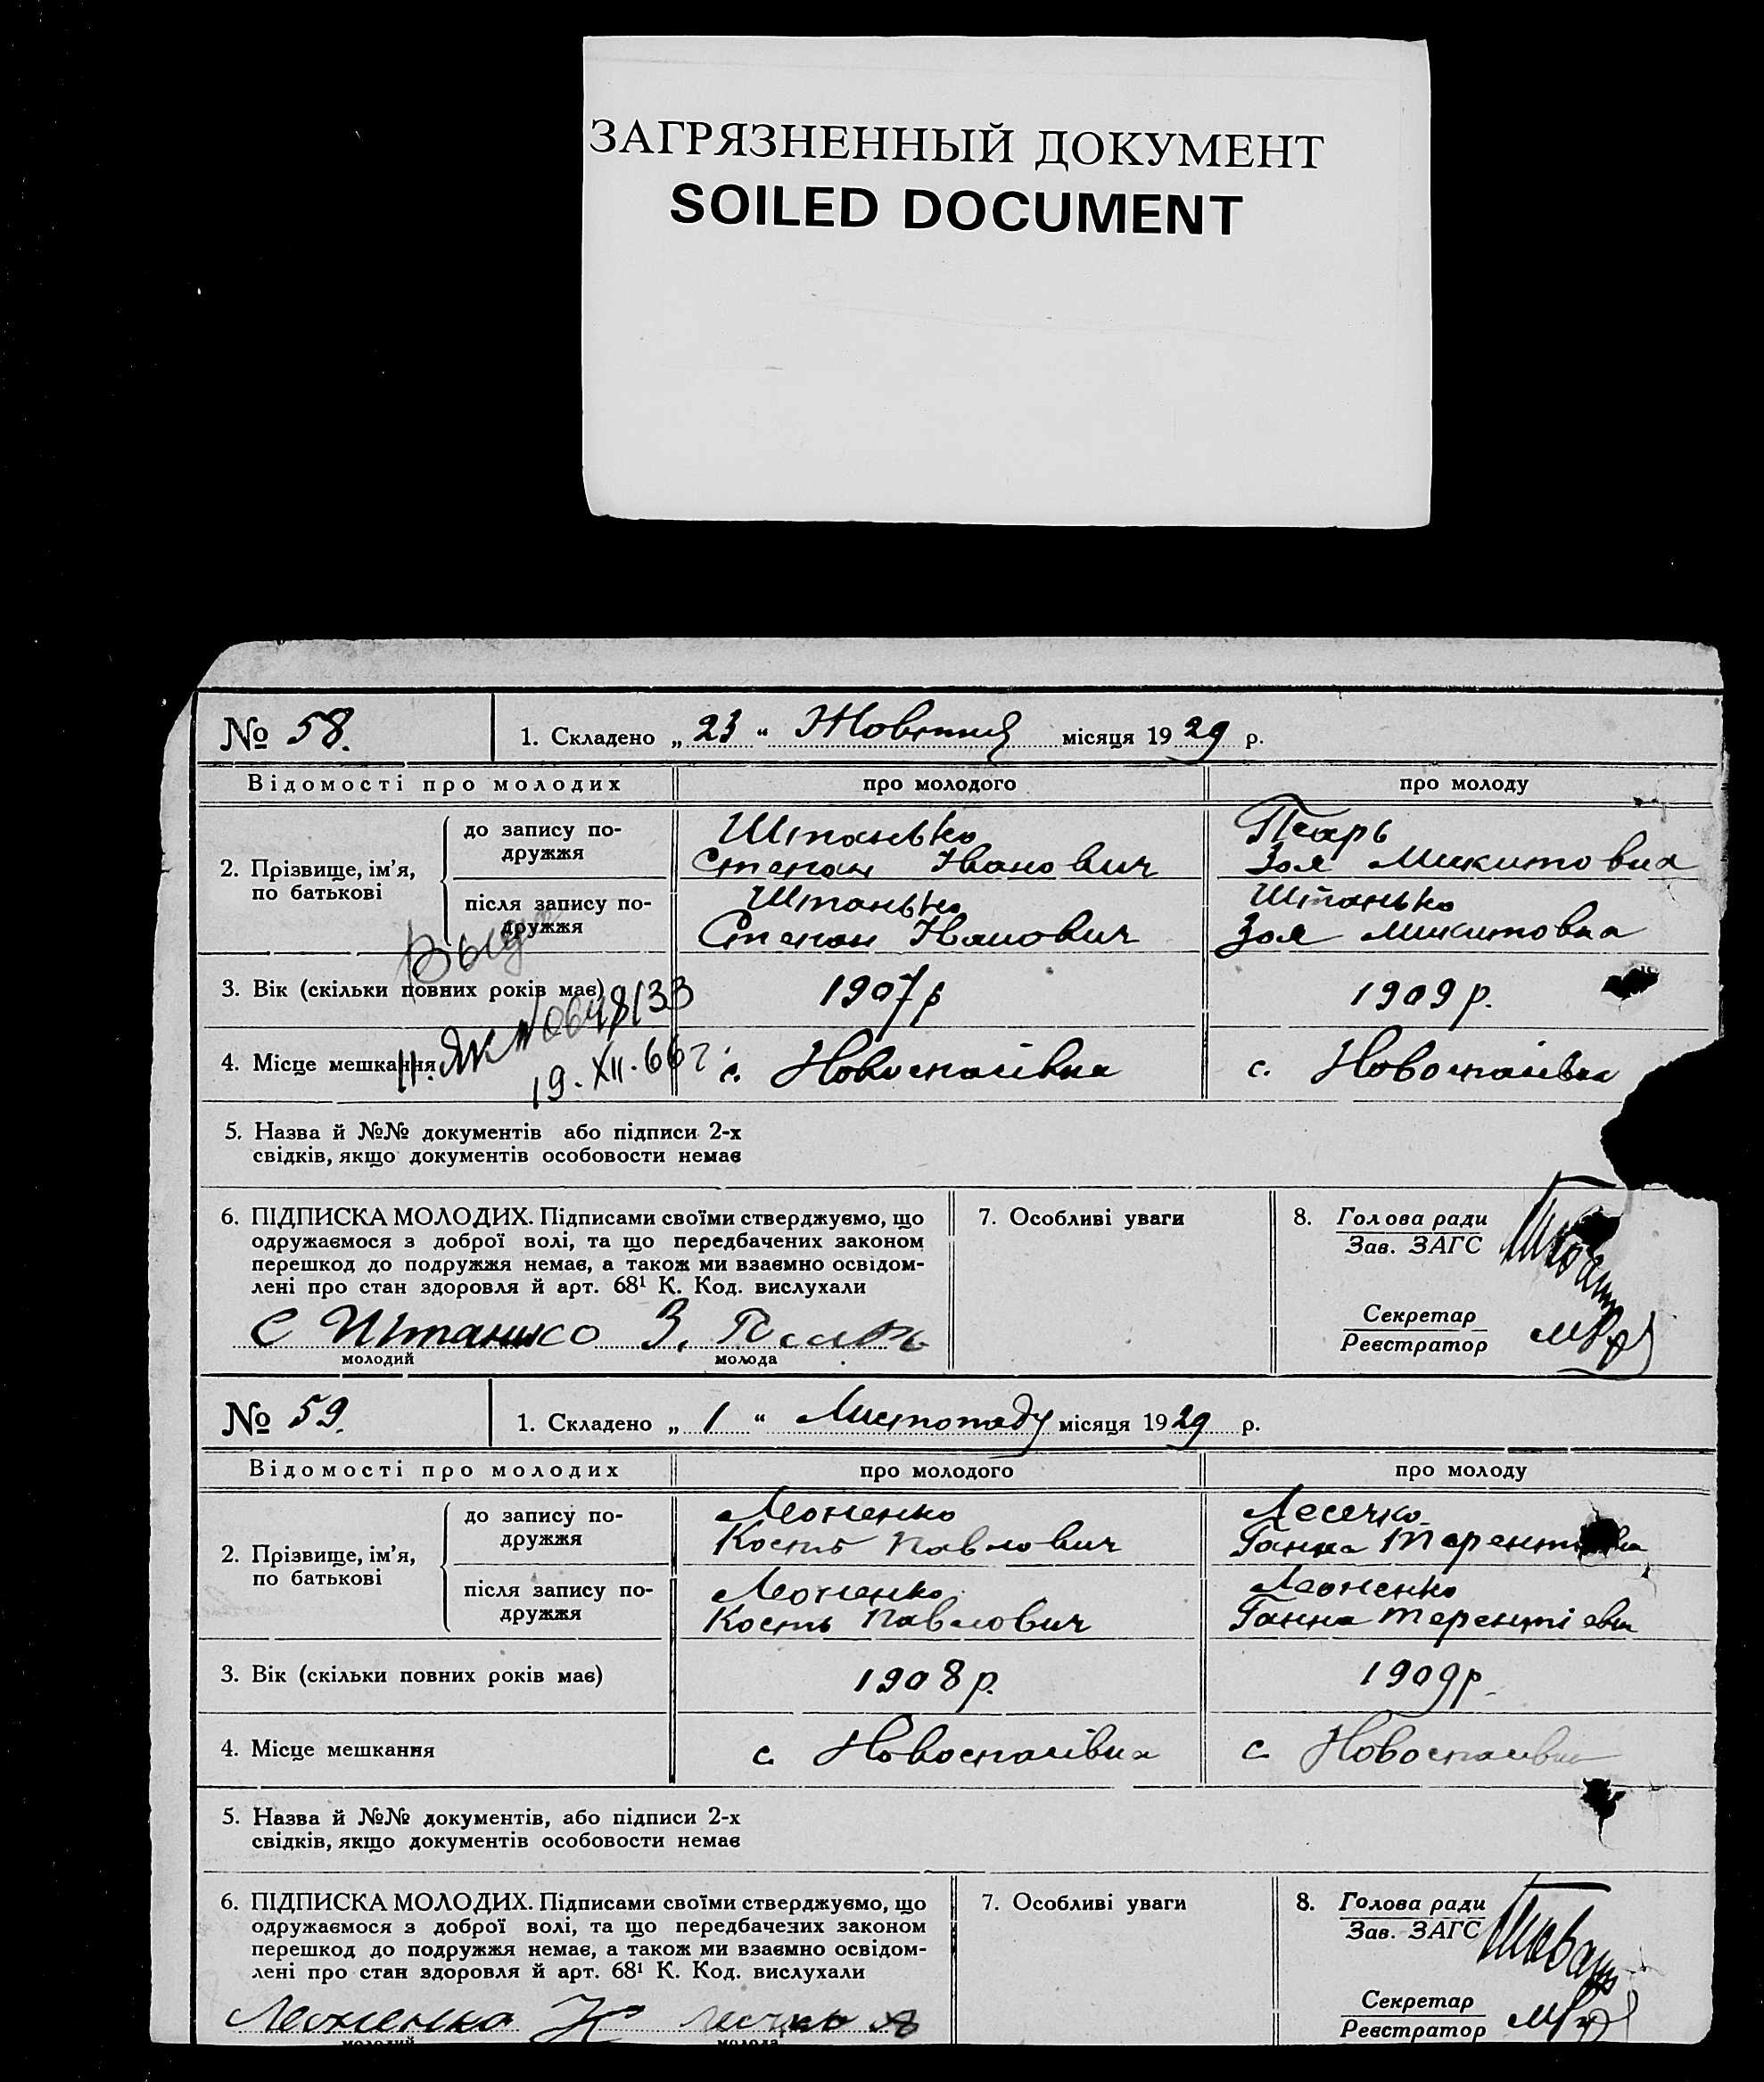 ЗАГРЯЗНЕННЫЙ ДОКУМЕНТ
SOILED DOCUMENT
№ 58. 1. Складено „ 23 “ Жовтня місяця 1929 р.
Відомості про молодих про молодого про молоду
2. Прізвище, ім'я, по батькові
до запису подружжя
Штанько
Степан Іванович
Зоя Микитовна
після запису подружжя
Штанько
Степан Іванович
Штанько
Зоя Микитовна
3. Вік (скільки повних років має) 1907 р 1909 р.
19.XII.66 г.
4. Місце мешкання с. Новоспасівка с. Новоспасівка
5. Назва й №№ документів або підписи 2-х
свідків, якщо документів особовости немає
6. ПІДПИСКА МОЛОДИХ. Підписами своїми стверджуємо, що
одружаємося з доброї волі, та що передбачених законом
перешкод до подружжя немає, а також ми взаємно освідом-
лені про стан здоровля й арт. 68¹ К. Код. вислухали
С Штанько З.
молодий молода
7. Особливі уваги
8. Голова ради
Зав. ЗАГС
Секретар
Реєстратор
№ 59. 1. Складено „ 1 “ Листопаду місяця 1929 р.
Відомості про молодих про молодого про молоду
2. Прізвище, ім'я, по батькові
до запису подружжя
Кость Павлович
Лесечко
Ганна
після запису подружжя
Кость Павлович
Ганна Терентієвна
3. Вік (скільки повних років має) 1908 р. 1909 р.
4. Місце мешкання с. Новоспасівка с. Новоспасівка
5. Назва й №№ документів, або підписи 2-х
свідків, якщо документів особовости немає
6. ПІДПИСКА МОЛОДИХ. Підписами своїми стверджуємо, що
одружаємося з доброї волі, та що передбачених законом
перешкод до подружжя немає, а також ми взаємно освідом-
лені про стан здоровля й арт. 68¹ К. Код. вислухали
молодий молода
7. Особливі уваги
8. Голова ради
Зав. ЗАГС
Секретар
Реєстратор